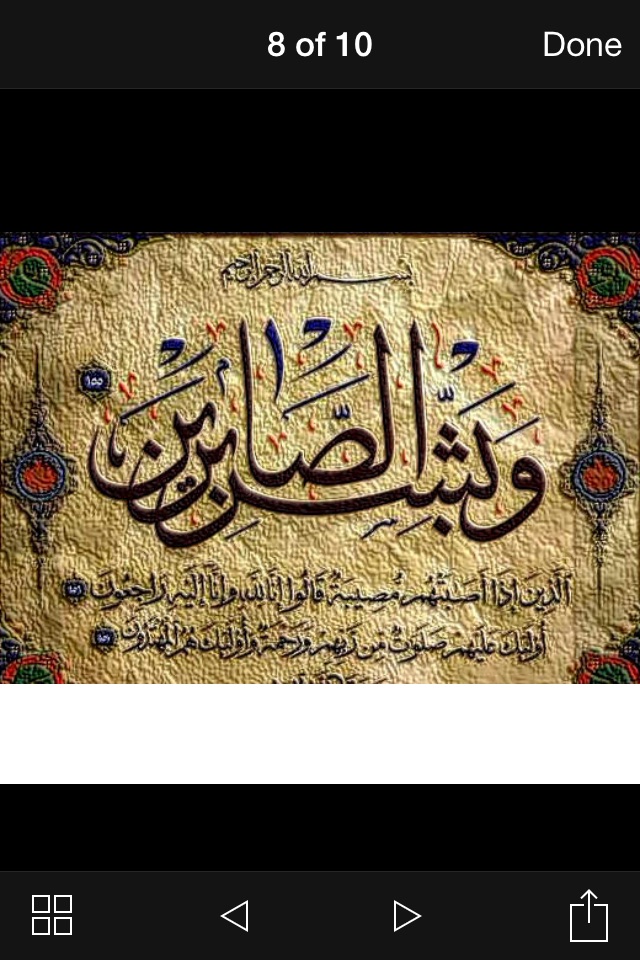 8 of 10
Done
بسم الله الرحمن الرحيم
وَبَشِّرِ الصَّابِرِيْنَ ١٥٥
الَّذِينَ اِذَا اَصَابَتْهُم مُصِيبَةٌ قَالُوا اِنَّا لِلّٰهِ وَاِنَّا اِلَيْهِ رَاجِعُونَ ١٥٦
اُولٰئِكَ عَلَيْهِمْ صَلَوَاتٌ مِن رَبِّهِمْ وَرَحْمَةٌ وَاُولٰئِكَ هُمُ الْمُهْتَدُونَ ١٥٧